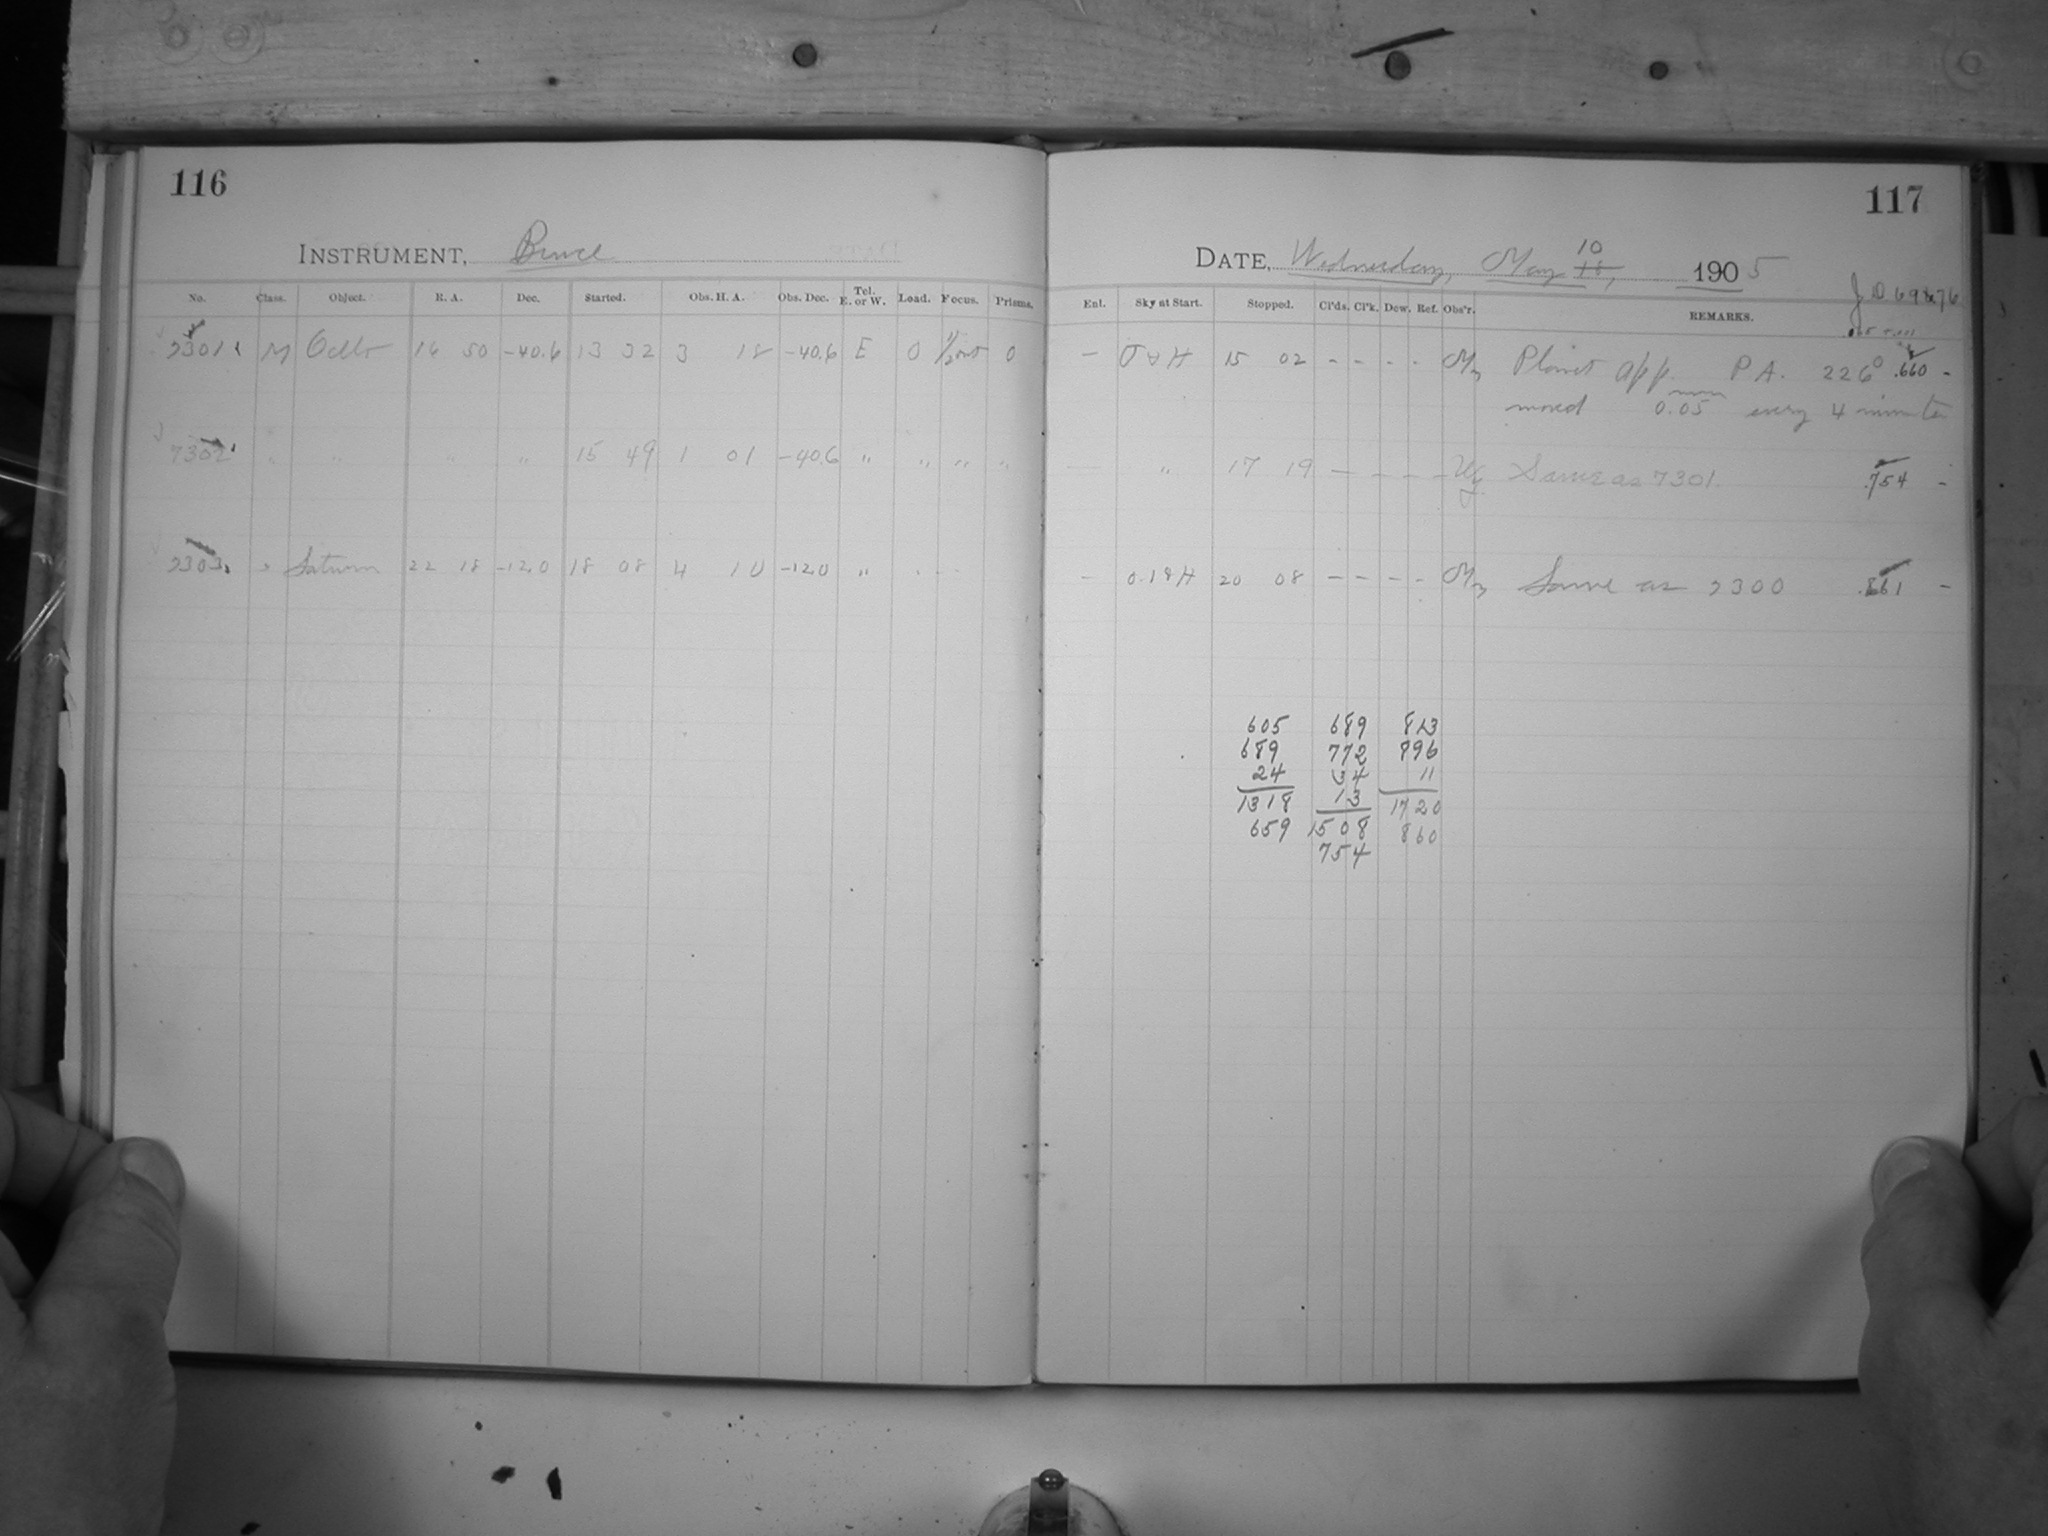 116
INSTRUMENT, Bruce
No. Class. Object. R. A. Dec. Started. Obs. H. A. Obs. Dec. Tel. E. or W. Load. Focus. Prisms.
7301 M Ocllo 16 50 -40.6 13 32 3 18 -40.6 E 0 0
7302 " " " " 15 49 1 01 -40.6 " " " "
7303 " Saturn 22 18 -12.0 18 08 4 10 -12.0 "
117
DATE, Wednesday, May 10, 1905
JD 69876
Enl. Sky at Start. Stopped. Cl'ds. Cl'k. Dew. Ref. Obs'r. REMARKS.
— 15 02 - - - - Planet app. P.A. 226° .660 -
moved 0.05 mm every 4 minutes
— " 17 19 — - - - Same as 7301. .754 -
— 20 08 - - - - Same as 7300 .861 -
605 689 813
689 772 896
24 34 11
1318 13 1720
659 1508 860
754